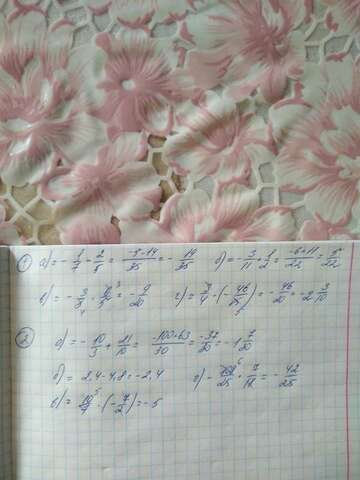 1) а) = - 1/7 + 2/5 = -5+14/35 = - 14/35 б) = - 3/11 + 1/2 = -6+11/22 = 5/22
в) = - 3/4 · 3/5 = - 9/20 г) = 7/4 · (- 46/35) = - 46/20 = -2 3/10
2) а) = - 10/3 + 21/10 = -100+63/30 = -37/30 = -1 7/30
б) = 2,4 - 4,8 = -2,4 г) - 6/25 · 7/18 = - 42/25
в) = 10/7 · (- 7/2) = -5